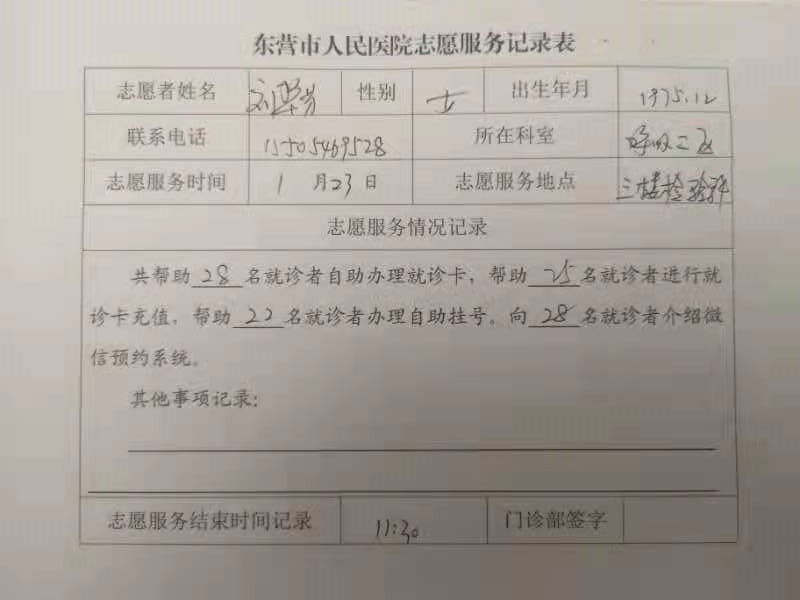 东营市人民医院志愿服务记录表
志愿者姓名 刘翠芳 性别 女 出生年月 1975.12
联系电话 15505469528 所在科室 呼吸二区
志愿服务时间 1 月 23 日 志愿服务地点 三楼检验科
志愿服务情况记录
共帮助 28 名就诊者自助办理就诊卡，帮助 25 名就诊者进行就
诊卡充值，帮助 22 名就诊者办理自助挂号。向 28 名就诊者介绍微
信预约系统。
其他事项记录：
志愿服务结束时间记录 11:30 门诊部签字